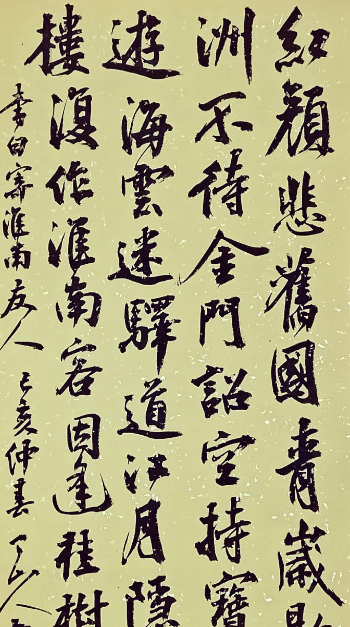 紅顏悲舊國青歲
洲不待金門詔空持寶
遊海雲迷驛道江月隱
樓復作淮南客因逢桂樹
李白寄淮南友人 己亥仲春 山人